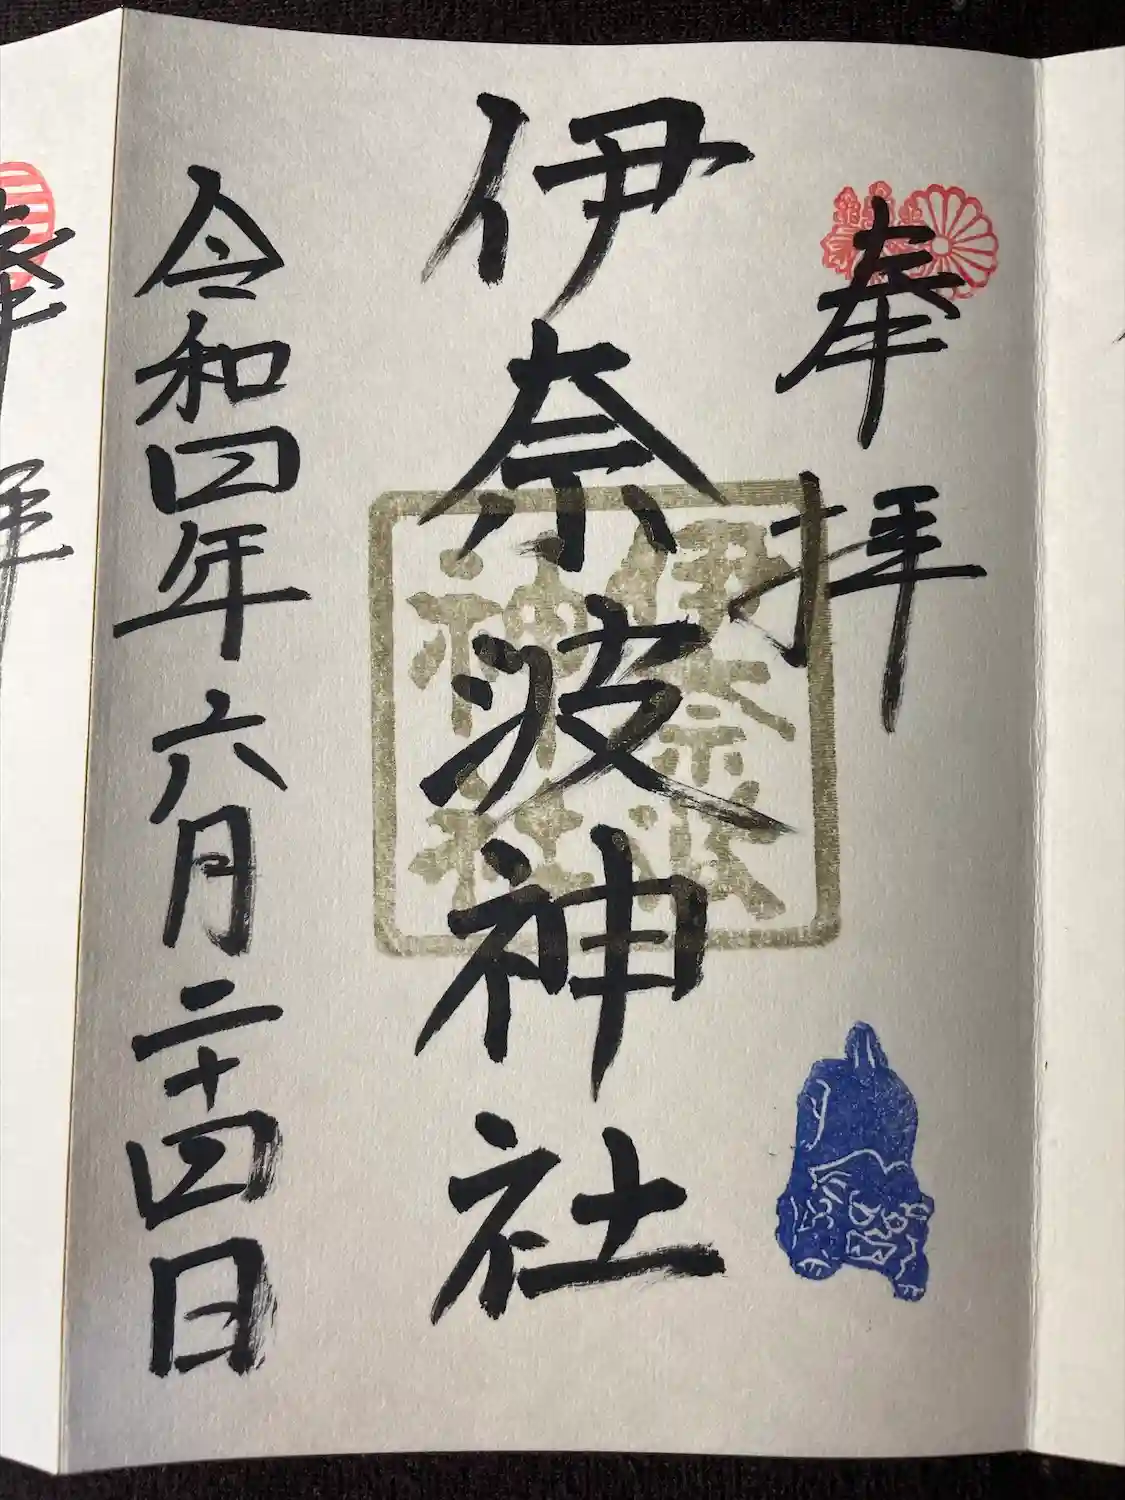 奉拝
伊奈波神社
伊奈波
神社
令和四年六月二十四日
奉拝